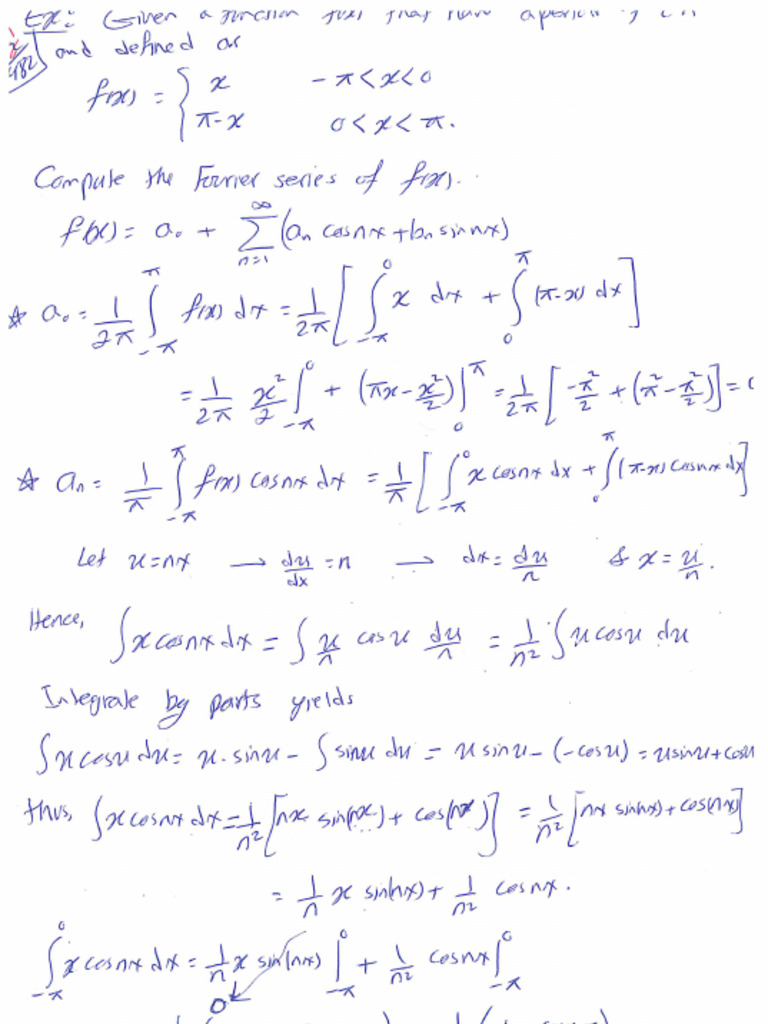 Ex: Given a function f(x) that have a period of
and defined as
f(x) = { x   -π < x < 0
π-x   0 < x < π.
Compute the Fourier series of f(x).
f(x) = a₀ + Σ_{n=1}^{∞} (aₙ cosnx + bₙ sinnx)
☆ a₀ = 1/2π ∫_{-π}^{π} f(x) dx = 1/2π [ ∫_{-π}^{0} x dx + ∫_{0}^{π} (π-x) dx ]
= 1/2π x²/2 |_{-π}^{0} + (πx - x²/2) |_{0}^{π} = 1/2π [ -π²/2 + (π² - π²/2) ] = 0
☆ aₙ = 1/π ∫_{-π}^{π} f(x) cosnx dx = 1/π [ ∫_{-π}^{0} x cosnx dx + ∫_{0}^{π} (π-x) cosnx dx ]
Let u = nx → du/dx = n → dx = du/n & x = u/n.
Hence, ∫ x cosnx dx = ∫ u/n cosu du/n = 1/n² ∫ u cosu du
Integrate by parts yields
∫ u cosu du = u · sinu - ∫ sinu du = u sinu - (-cosu) = u sinu + cosu
thus, ∫ x cosnx dx = 1/n² [ nx sin(nx) + cos(nx) ] = 1/n² [ nx sin(nx) + cos(nx) ]
= 1/n x sin(nx) + 1/n² cosnx.
∫_{-π}^{0} x cosnx dx = 1/n x sin(nx) |_{-π}^{0} + 1/n² cosnx |_{-π}^{0}
0